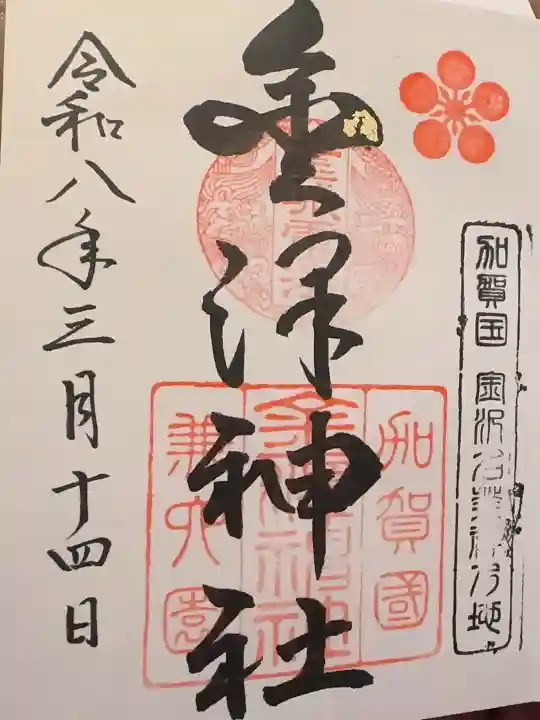 加賀国 金沢名發祥乃地
金澤神社
加賀國
金澤神社
兼六園
令和八年三月十四日